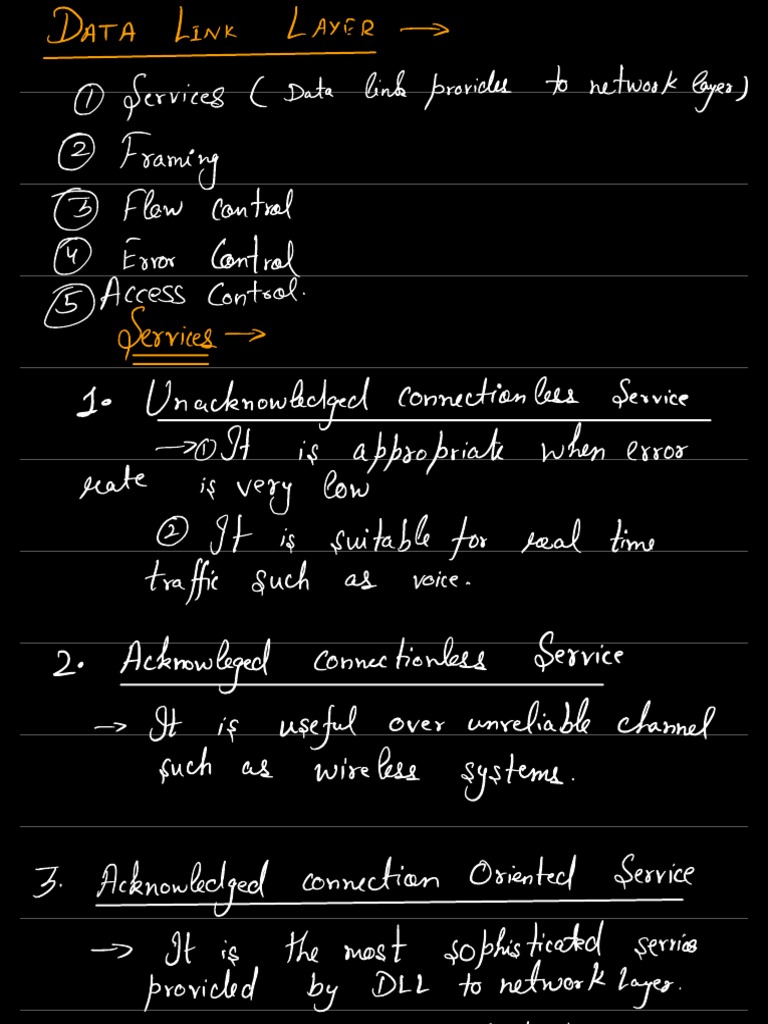 DATA LINK LAYER →
① Services ( Data link provides to network layer)
② Framing
③ Flow control
④ Error Control
⑤ Access control.
Services →
1. Unacknowledged connectionless Service
→ ① It is appropriate when error
rate is very low
② It is suitable for real time
traffic such as voice.
2. Acknowleged connectionless Service
→ It is useful over unreliable channel
such as wireless systems.
3. Acknowledged connection Oriented Service
→ It is the most sophisticated service
provided by DLL to network layer.